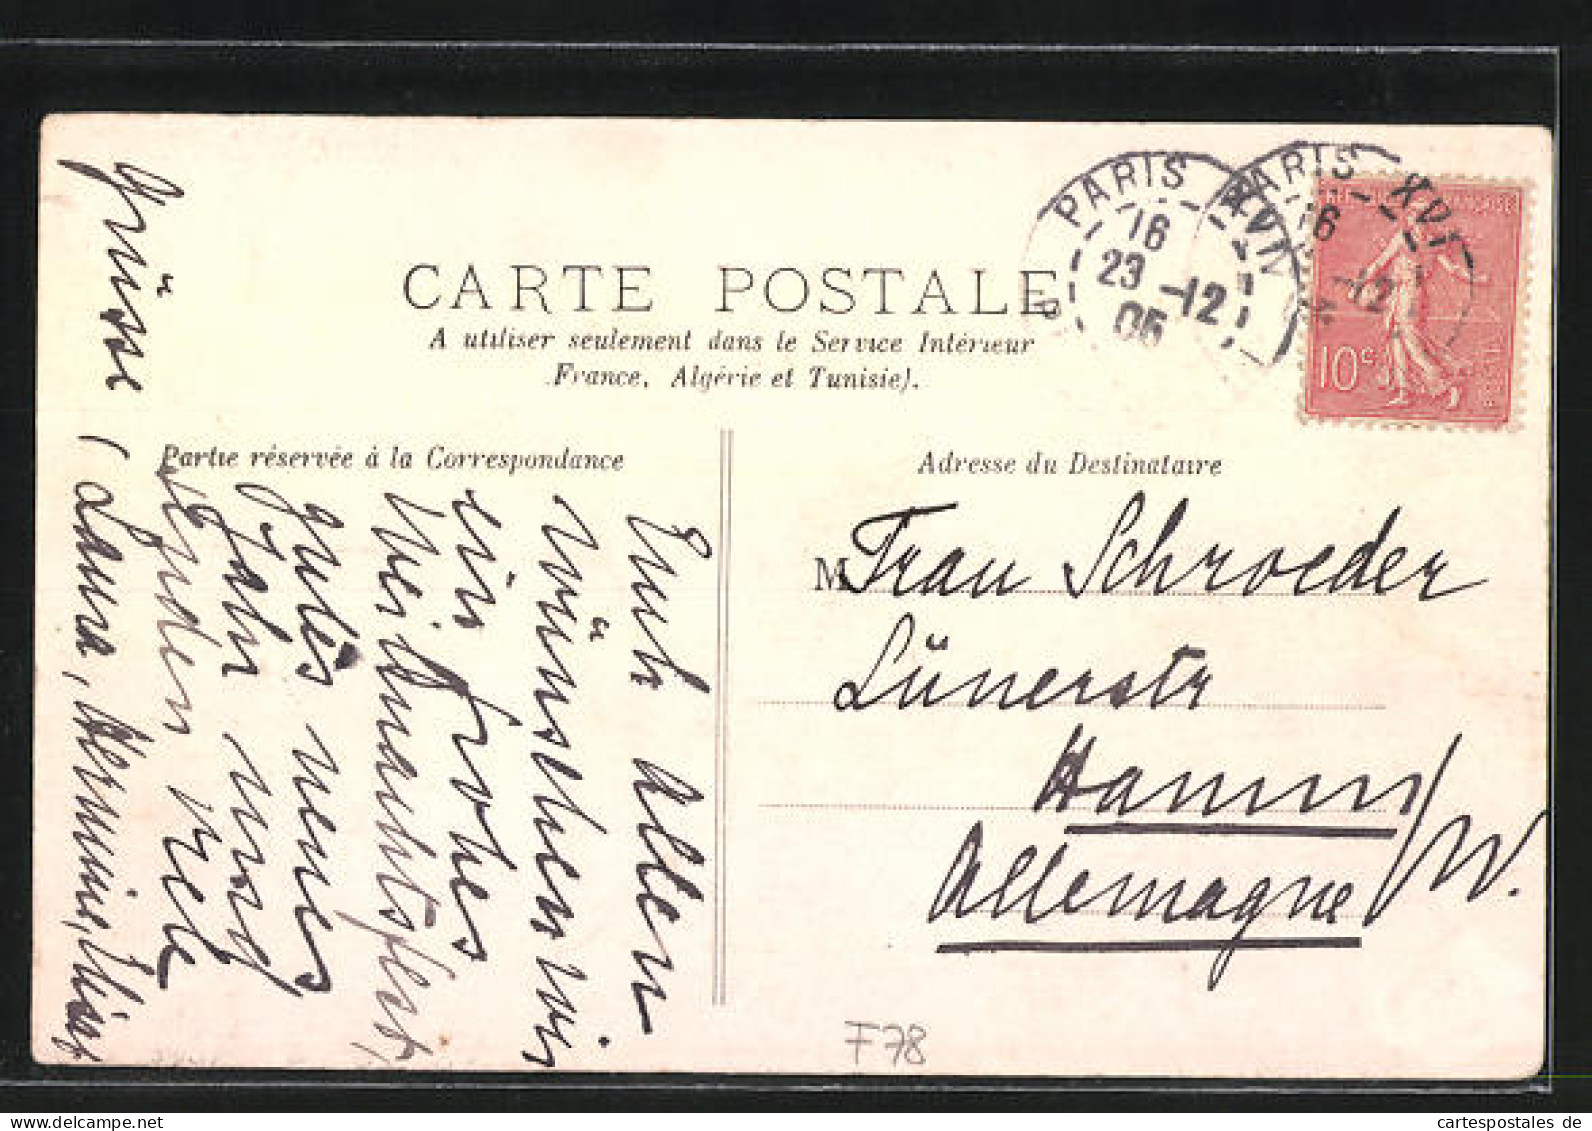 CARTE POSTALE
A utiliser seulement dans le Service Intérieur
(France, Algérie et Tunisie).
PARIS XVI
16
23 -12
05
PARIS XVI
16
-12
10c
Partie réservée à la Correspondance
Adresse du Destinataire
Euch Allen
wünschen wir
ein frohes
Weihnachtsfest,
gutes neues
Jahr und
senden viele
Grüsse
Hermine,
M Frau Schroeder
Lünerstr
Hamm/W.
Allemagne
F78
cartespostales de